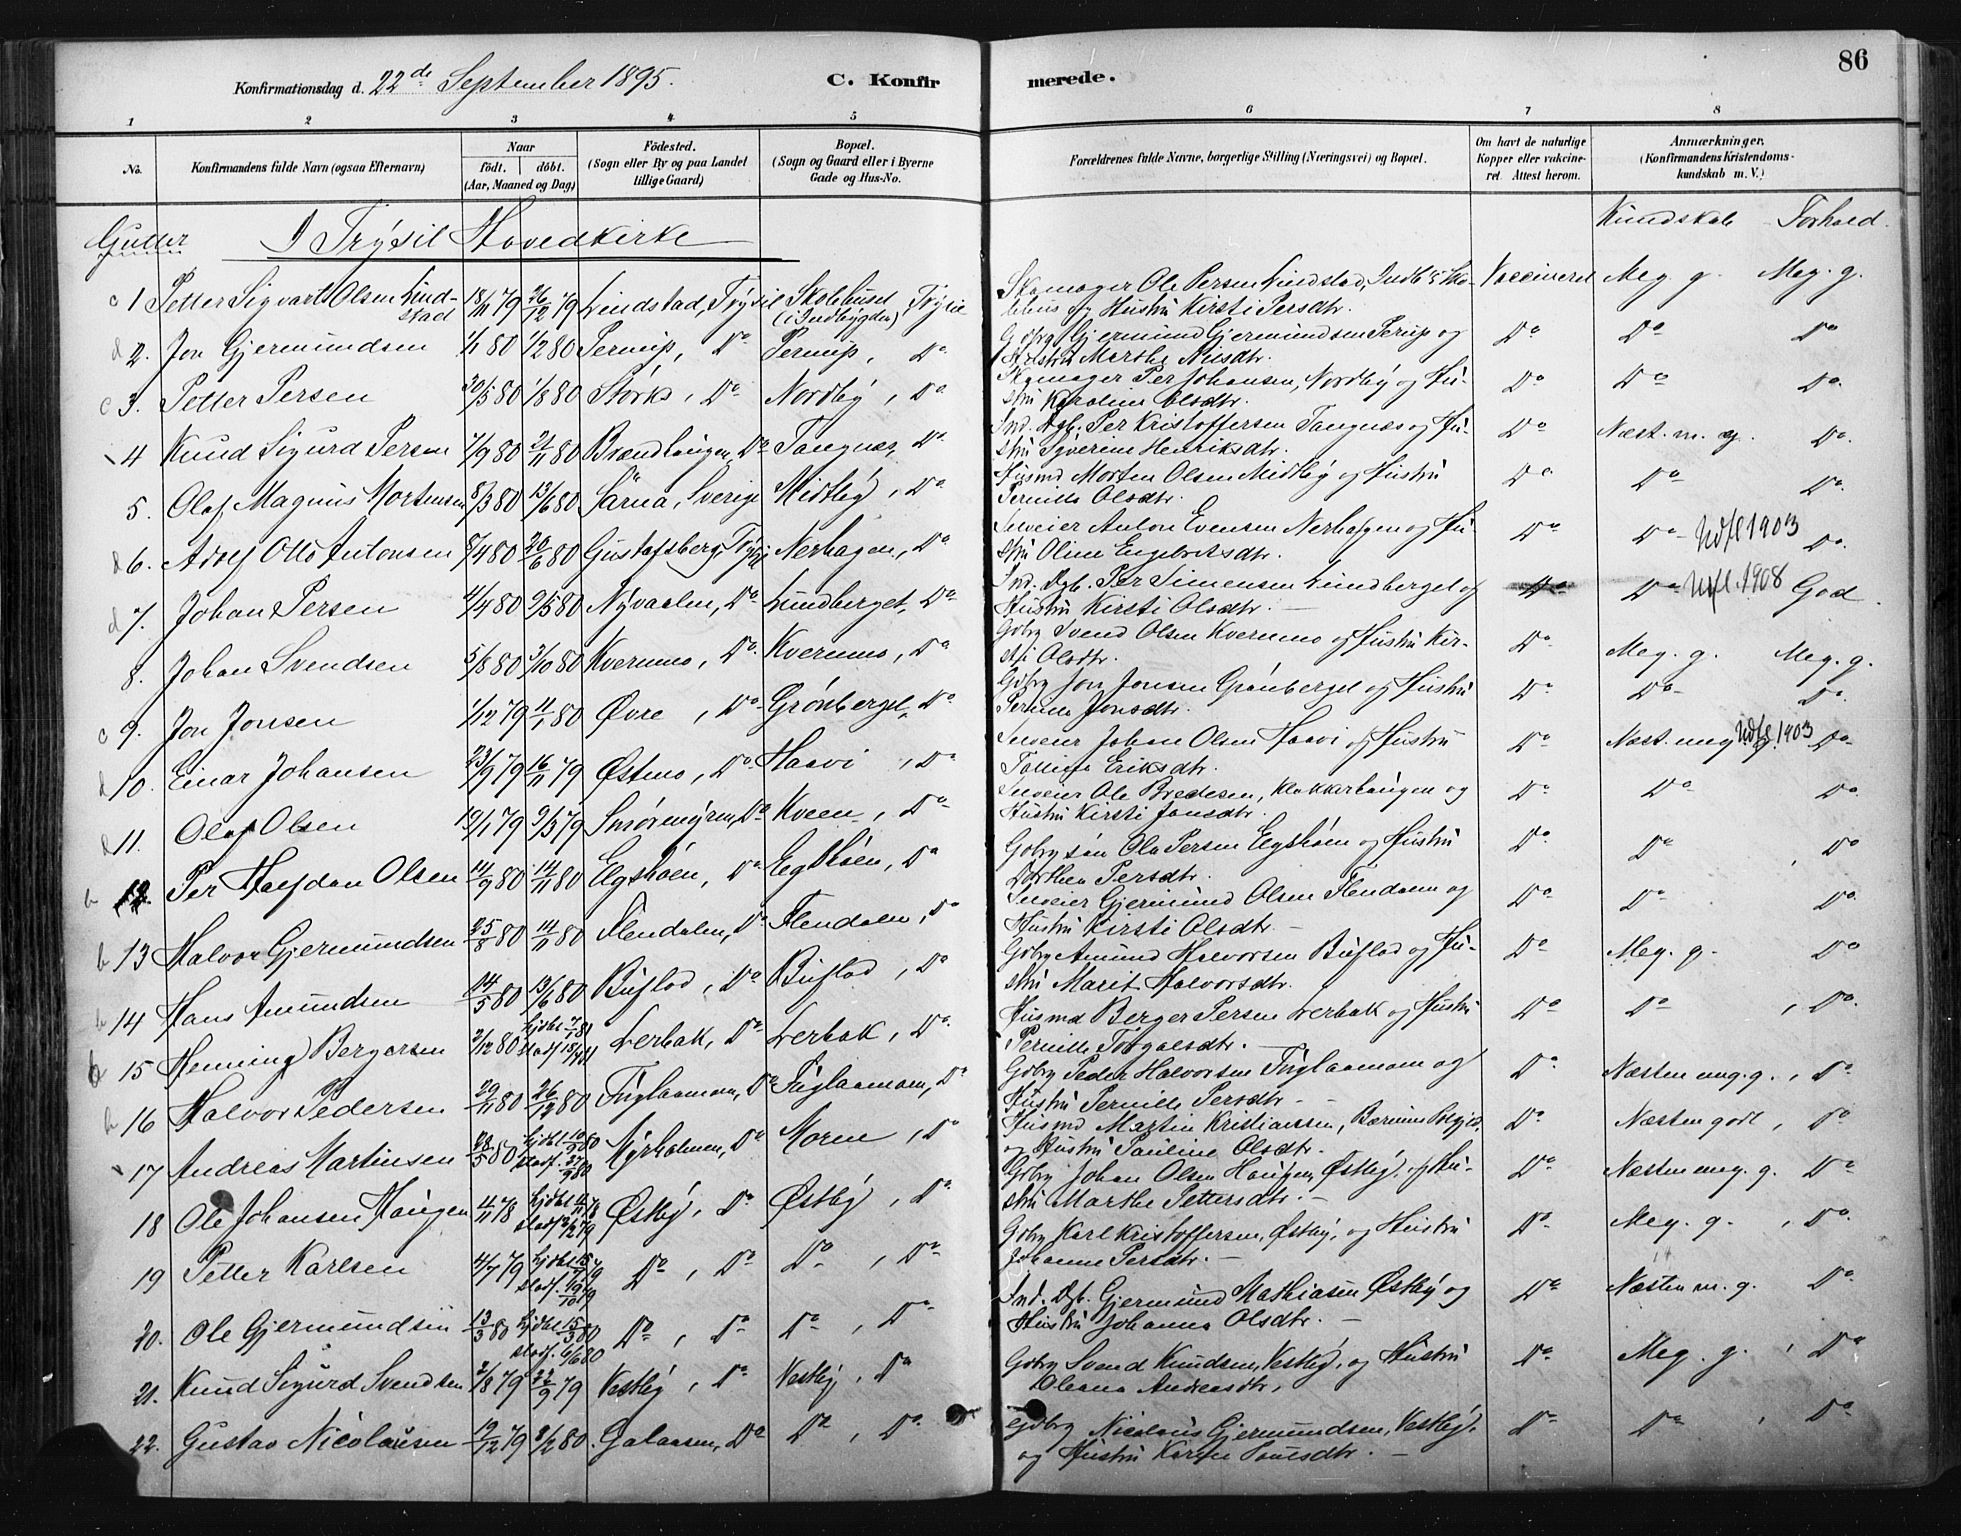 86
Konfirmationsdag d. 22de September 1895.
C. Konfirmerede.
1 2 3 4 5 6 7 8
No. Konfirmandens fulde Navn (ogsaa Efternavn) Naar født. døbt. (Aar, Maaned og Dag) Födested. (Sogn eller By og paa Landet tillige Gaard) Bopæl. (Sogn og Gaard eller i Byerne Gade og Hus-No.
Forældrenes fulde Navne, borgerlige Stilling (Næringsvei) og Bopæl. Om havt de naturlige Kopper eller vakcineret. Attest herom. Anmærkninger. (Konfirmandens Kristendomskundskab m. V.)
Gutter I Trysil Hovedkirke Kundskab Forhold.
c 1 Petter Sigvart Olsen Lindstad 18/11 79 26/12 79 Lindstad, Trysil Skolehuset (i Indbygden), Trysil Skomager Ole Persen Lindstad, og Hustru Kirsti Persdtr. Vaccineret Meg. g. Meg. g.
d 2. Jon Gjermundsen 1/1 80 1/2 80 Perup, Do Perup, Do Gbrg Gjermund Gjermundsen Perup og Hustru Marthe Nilsdtr. Do Do Do
c 3. Petter Persen 30/5 80 1/8 80 Störks, Do Nordby, Do Skomager Per Johansen, Nordby og Hustru Karoline Olsdtr. Do Do Do.
4 Knud Sigurd Persen 7/9 80 21/11 80 Brændhaugen, Do Tangnæs, Do. Ind. Dgb. Per Kristoffersen Tangnæs og Hustru Syverine Henriksdtr. Do Næst. m. g. Do.
5. Olaf Magnus Mortensen 8/3 80 13/6 80 Särna, Sverige Midtby, Do. Husmd Morten Olsen Midtby og Hustru Pernille Olsdtr. Do Do Do.
d 6. Adolf Otto Antonsen 8/4 80 20/6 80 Gustafsberg, Trysil Nerhagen, Do Selveier Anton Evensen Nerhagen og Hustru Oline Engebretsdtr. Do Do Udfl 1903 Do.
d 7. Johan Persen 2/4 80 2/5 80 Nyvaalen, Do Lundberget, Do Ind. Dgb. Per Simensen Lundberget og Hustru Kirsti Olsdtr. Do Do Udfl. 1908 God.
8. Johan Svendsen 5/8 80 3/10 80 Kvernmo, Do. Kvernmo, Do Gbrg Svend Olsen Kvernmo og Hustru Kirsti Olsdtr. Do Meg. g. Meg. g.
c 9. Jon Jonsen 1/12 79 11/1 80 Øvre, Do Grønberget, Do Gbrg Jon Jonsen Grønberget og Hustru Pernille Jonsdtr. Do Do Do.
d 10. Einar Johansen 23/9 79 16/11 79 Østmo, Do Haavi, Do Selveier Johan Olsen Haavi og Hustru Eriksdtr. Do Næst. meg. g. Udfl. 1903 Do
d 11. Olaf Olsen 19/1 79 9/3 79 Smörmyren, Do Kveen, Do. Selveier Ole Bredesen, Klokkerhaugen og Hustru Kirsti Jonsdtr. Do Do Do.
b 12. Per Halfdan Olsen 14/9 80 14/11 80 Elgshöen, Do Elgshöen, Do Gbrgsön Ole Persen Elgshöen og Hustru Dorthea Persdtr. Do Do Do
b 13 Halvor Gjermundsen 25/8 80 14/11 80 Flendalen, Do Flendalen, Do Selveier Gjermund Olsen Flendalen og Hustru Kirsti Olsdtr. Do Do Do
b 14 Hans Amundsen 14/5 80 13/6 80 Buflod, Do Buflod, Do Gbrg Amund Halvorsen Buflod og Hustru Marit Halvorsdtr. Do Meg. g. Do
15 Henning Bergersen 2/12 80 Hjdbt 2/1 81 Stadf 18/4 81 Lerbak, Do Lerbak, Do. Husmd Berger Persen Lerbak og Hustru Pernille Torgalsdtr. Do Do Do.
b 16 Halvor Pedersen 29/11 80 26/12 80 Fuglaamoen, Do Fuglaamoen, Do Gbrg Peder Halvorsen Fuglaamoen og Hustru Pernille Persdtr. Do Næsten meg. g. Do
17 Andreas Martinsen 28/5 80 Hjdbt Stadf. Myrholmen, Do Moren, Do Husmd Martin Kristiansen, Bærum og Hustru Pauline Olsdtr. Do Næsten godt, Do
18 Ole Johansen Haugen 4/11 78 Hjdbt Stadf Østby, Do Østby, Do Gbrg Johan Olsen Haugen, Østby, og Hustru Marthe Pettersdtr. Do Næsten meg. g. Do
19 Petter Karlsen 4/7 79 Hjdbt Stadf. 19/10 79 Do, Do Do, Do Gbrg Karl Kristoffersen, Østby, og Hustru Johanne Persdtr. Do Meg. g. Do.
20. Ole Gjermundsen 13/3 80 Hjdbt 15/3 80 Stadf. 6/6 80 Do, Do Do, Do Ind. Dgb. Gjermund Mathiasen Østby og Hustru Johanne Olsdtr. Do Næsten m. g. Do.
21. Knud Sigurd Svendsen 2/8 79 22/9 79 Vestby, Do Vestby, Do Gbrg Svend Knudsen, Vestby, og Hustru Oleana Andreasdtr. Do Meg. g. Do
22. Gustav Nicolaisen 19/12 79 8/2 80. Galaasen, Do Do, Do. Gbrg Nicolaus Gjermundsen, Vestby, og Hustru Karen Poulsdtr. Do Do Do